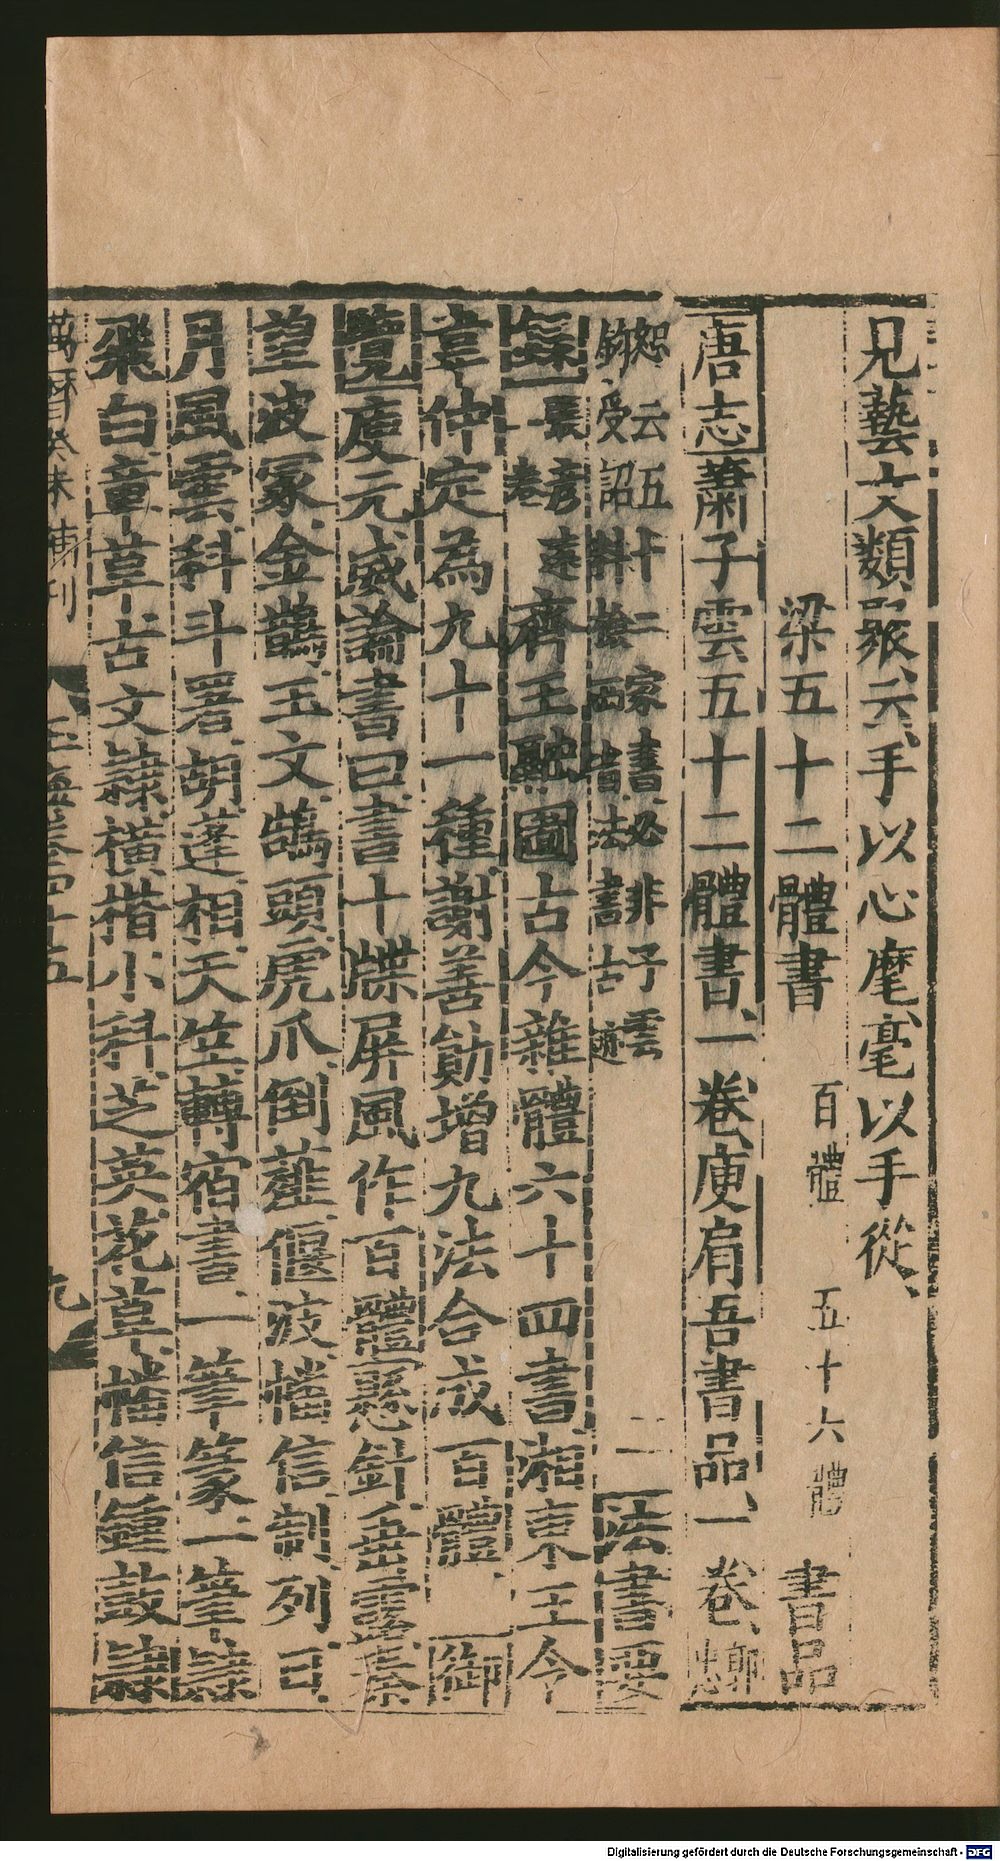 兄藝文類聚云手以心麾毫以手從
梁五十二體書 百體 五十六體 書品
唐志蕭子雲五十二體書一卷庾肩吾書品一卷
恕云五十二家書必非子雲 二 法書要
錄 張彥遠 卷 齊王融圖古今雜體六十四書湘東王今
韋仲定為九十一種謝善勛增九法合成百體 御
覽庾元威論書曰書十牒屏風作百體懸針垂露秦
望波冢金鵲玉文鵠頭虎爪倒薤偃波幡信制列日
月風雲科斗署胡蓬相天竺轉宿書一筆篆一筆隸
飛白章草古文隸橫楷小科芝英花草幡信鍾鼓隸
萬曆癸未 刊 玉海卷四十五 九
Digitalisierung gefördert durch die Deutsche Forschungsgemeinschaft - DFG